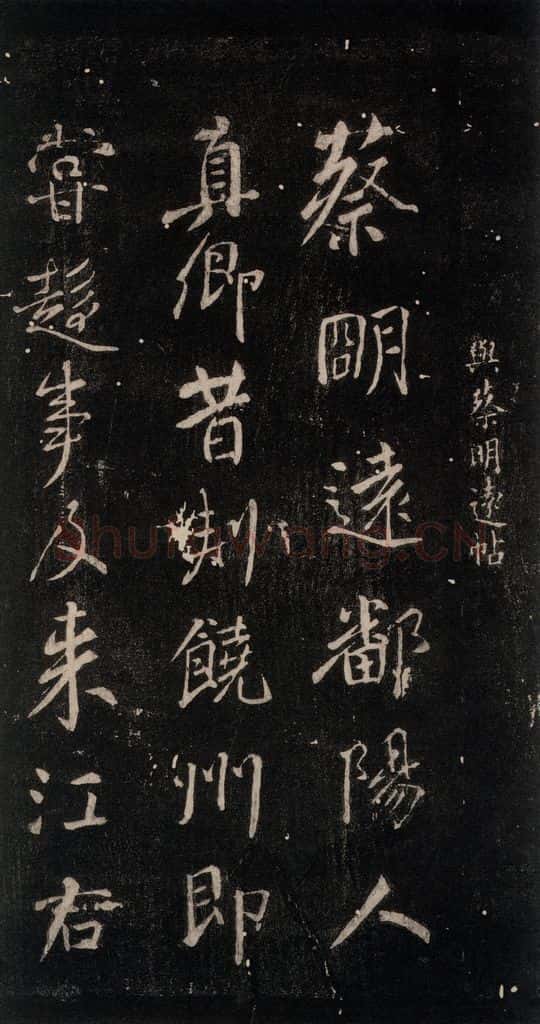 與蔡明遠帖
蔡明遠鄱陽人
真卿昔刺饒州即
嘗趍事及来江右
shufawang.CN